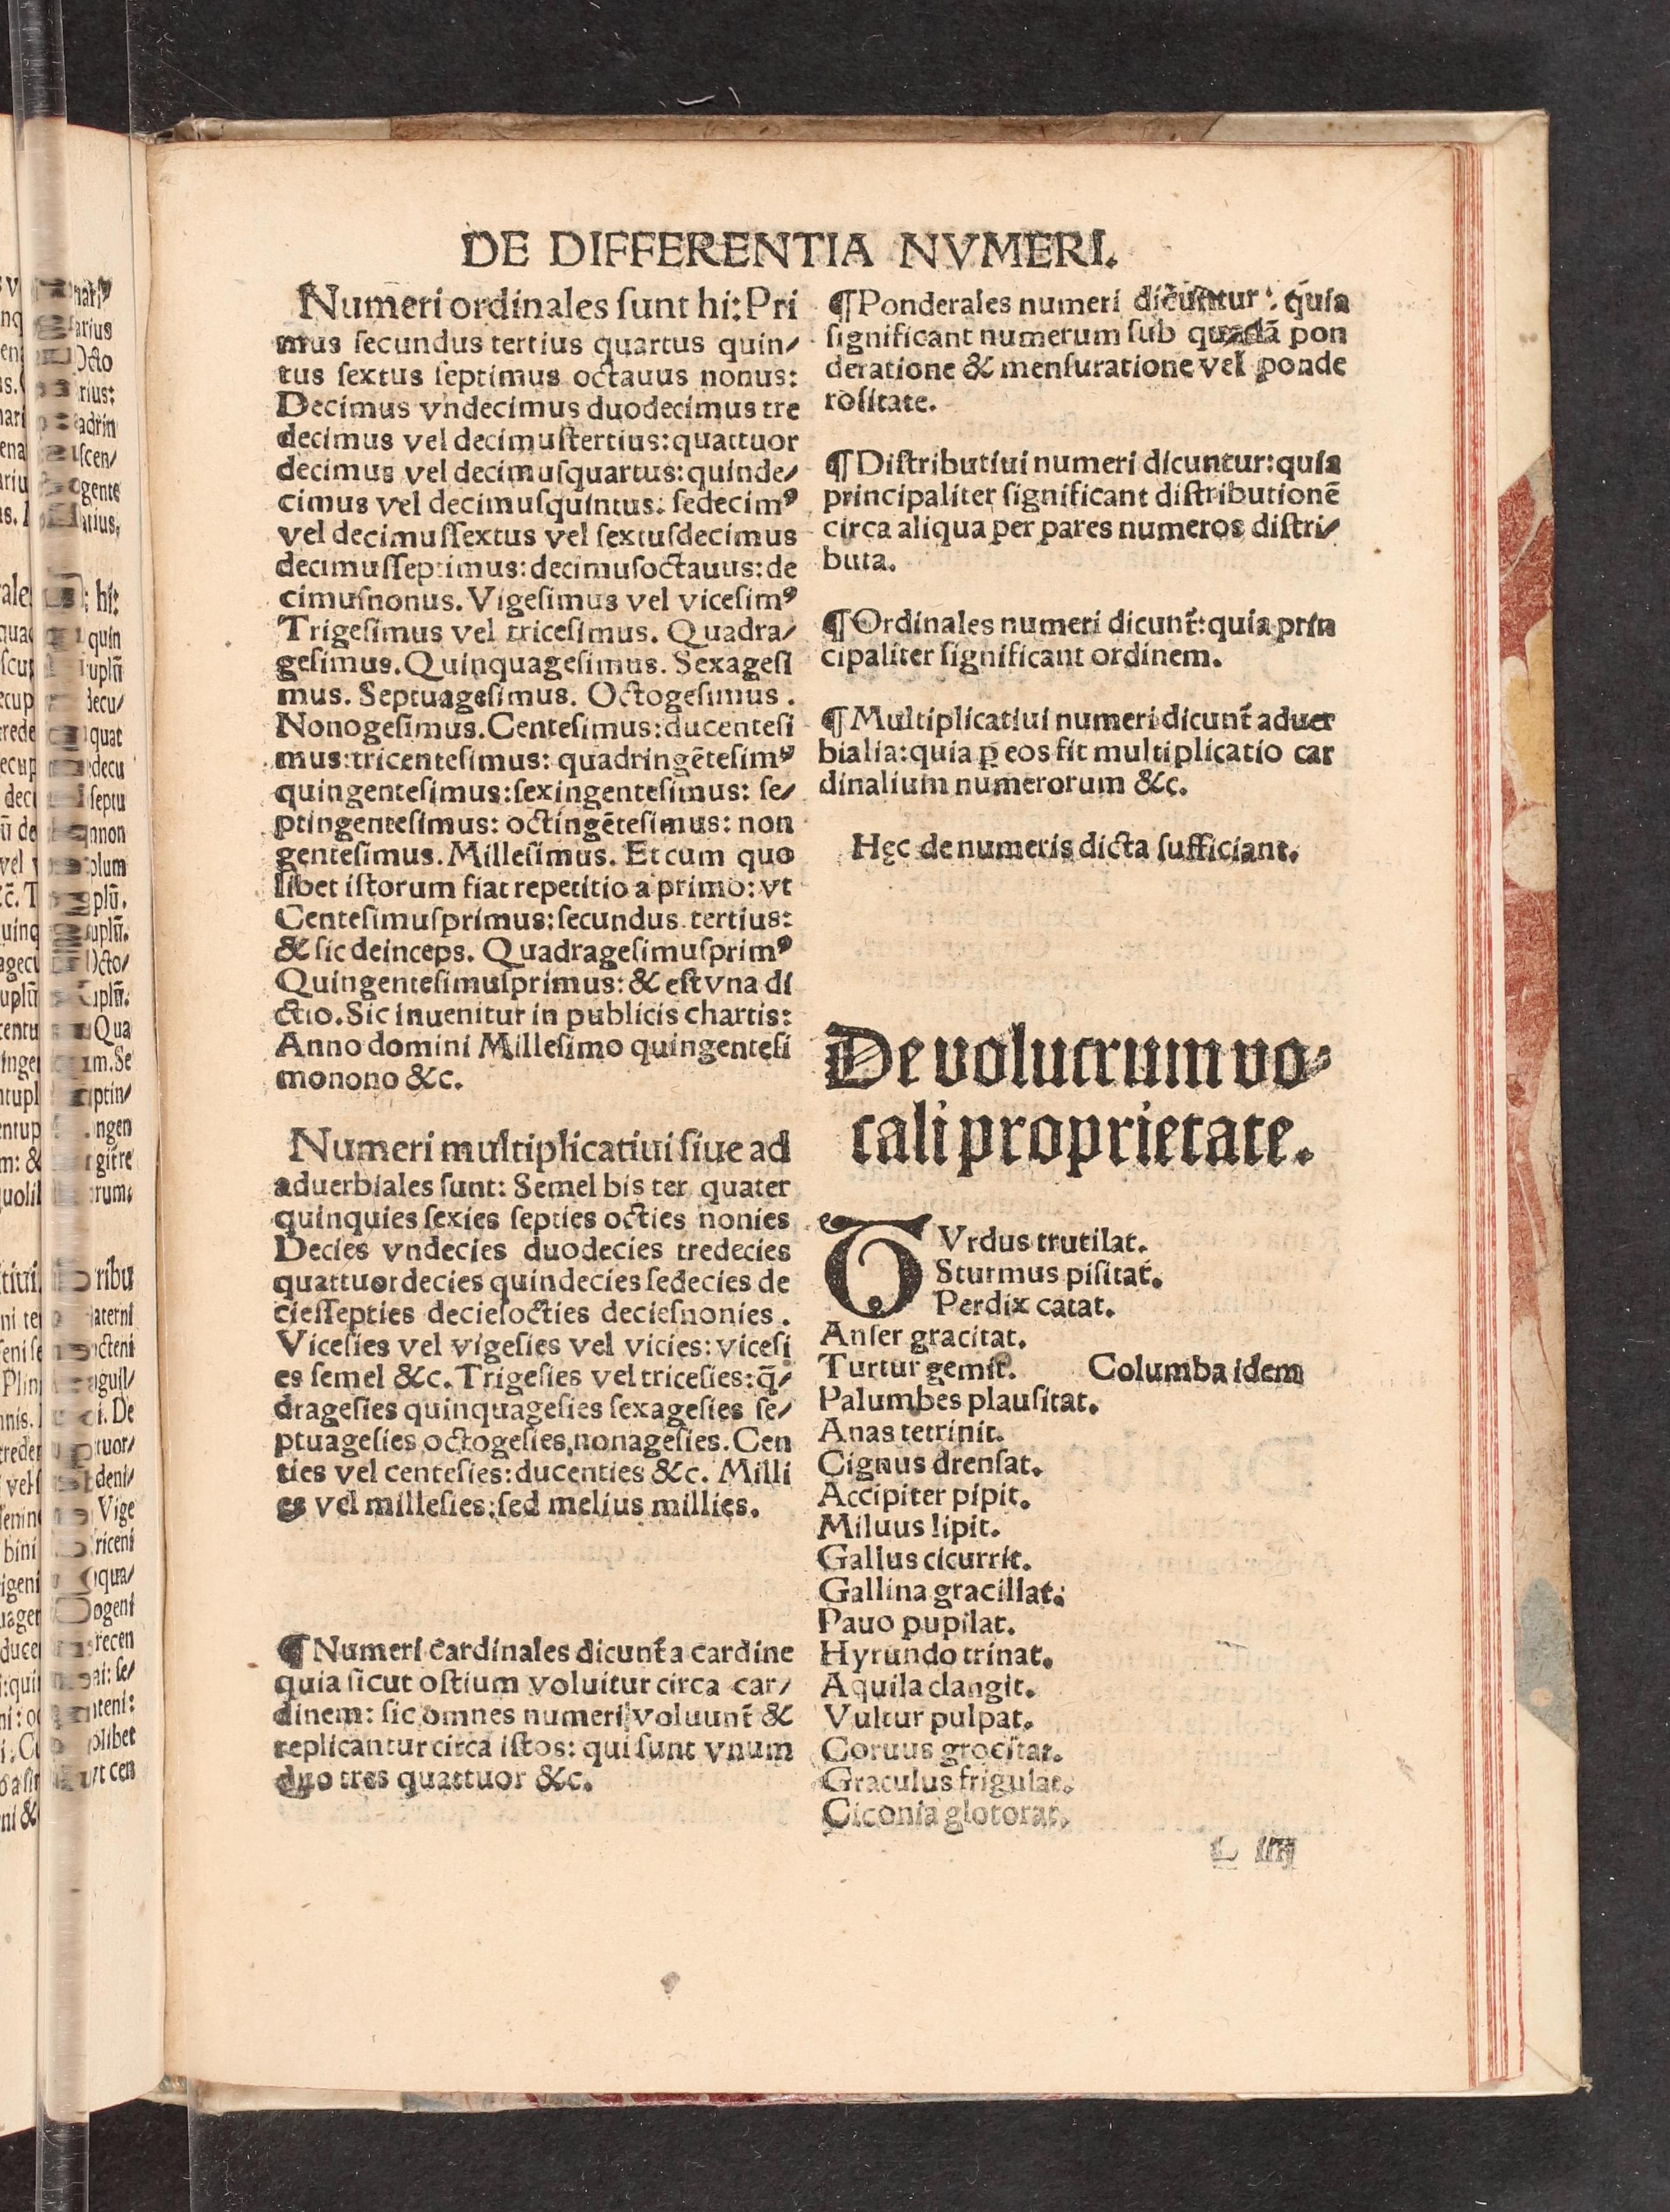 DE DIFFERENTIA NVMERI.
Numeri ordinales ſunt hi: Pri
mus ſecundus tertius quartus quin⸗
tus ſextus ſeptimus octauus nonus:
Decimus vndecimus duodecimus tre
decimus vel decimuſtertius: quattuor
decimus vel decimuſquartus: quinde⸗
cimus vel decimuſquintus: ſedecimꝰ
vel decimuſſextus vel ſextuſdecimus
decimuſſeptimus: decimuſoctauus: de
cimuſnonus. Vigeſimus vel viceſimꝰ
Trigeſimus vel triceſimus. Quadra⸗
geſimus. Quinquageſimus. Sexageſi
mus. Septuageſimus. Octogeſimus.
Nonogeſimus. Centeſimus: ducenteſi
mus: tricenteſimus: quadringēteſimꝰ
quingenteſimus: ſexingenteſimus: ſe⸗
ptingenteſimus: octingēteſimus: non
genteſimus. Milleſimus. Et cum quo
libet iſtorum fiat repetitio a primo: vt
Centeſimuſprimus: ſecundus tertius:
& ſic deinceps. Quadrageſimuſprimꝰ
Quingenteſimuſprimus: & eſt vna di
ctio. Sic inuenitur in publicis chartis:
Anno domini Milleſimo quingenteſi
monono &c.
Numeri multiplicatiui ſiue ad
aduerbiales ſunt: Semel bis ter quater
quinquies ſexies ſepties octies nonies
Decies vndecies duodecies tredecies
quattuordecies quindecies ſedecies de
cieſſepties decieſocties decieſnonies.
Viceſies vel vigeſies vel vicies: viceſi
es ſemel &c. Trigeſies vel triceſies: q̄⸗
drageſies quinquageſies ſexageſies ſe⸗
ptuageſies octogeſies nonageſies. Cen
ties vel centeſies: ducenties &c. Milli
es vel milleſies: ſed melius millies.
¶ Numeri cardinales dicunt̄ a cardine
quia ſicut oſtium voluitur circa car⸗
dinem: ſic omnes numeri voluunt̄ &
replicantur circa iſtos: qui ſunt vnum
duo tres quattuor &c.
¶ Ponderales numeri dicuntur: quia
ſignificant numerum ſub quadā pon
deratione & menſuratione vel ponde
roſitate.
¶ Diſtributiui numeri dicuntur: quia
principaliter ſignificant diſtributionē
circa aliqua per pares numeros diſtri⸗
buta.
¶ Ordinales numeri dicunt̄: quia prin
cipaliter ſignificant ordinem.
¶ Multiplicatiui numeri dicunt̄ aduer
bialia: quia ꝑ eos fit multiplicatio car
dinalium numerorum &c.
Hęc de numeris dicta ſufficiant.
De volucrum vo⸗
cali proprietate.
TVrdus trutilat.
Sturmus piſitat.
Perdix catat.
Anſer gracitat.
Turtur gemit. Columba idem
Palumbes plauſitat.
Anas tetrinit.
Cignus drenſat.
Accipiter pipit.
Miluus lipit.
Gallus cicurrit.
Gallina gracillat.
Pauo pupilat.
Hyrundo trinat.
Aquila clangit.
Vultur pulpat.
Coruus grocitat.
Graculus frigulat.
Ciconia glotorat.